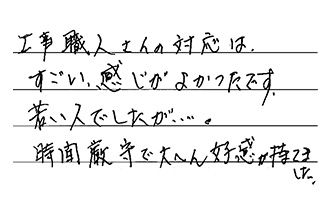 工事職人さんの対応は、
すごい、感じがよかったです。
若い人でしたが…。
時間厳守で大へん好感が持てました。